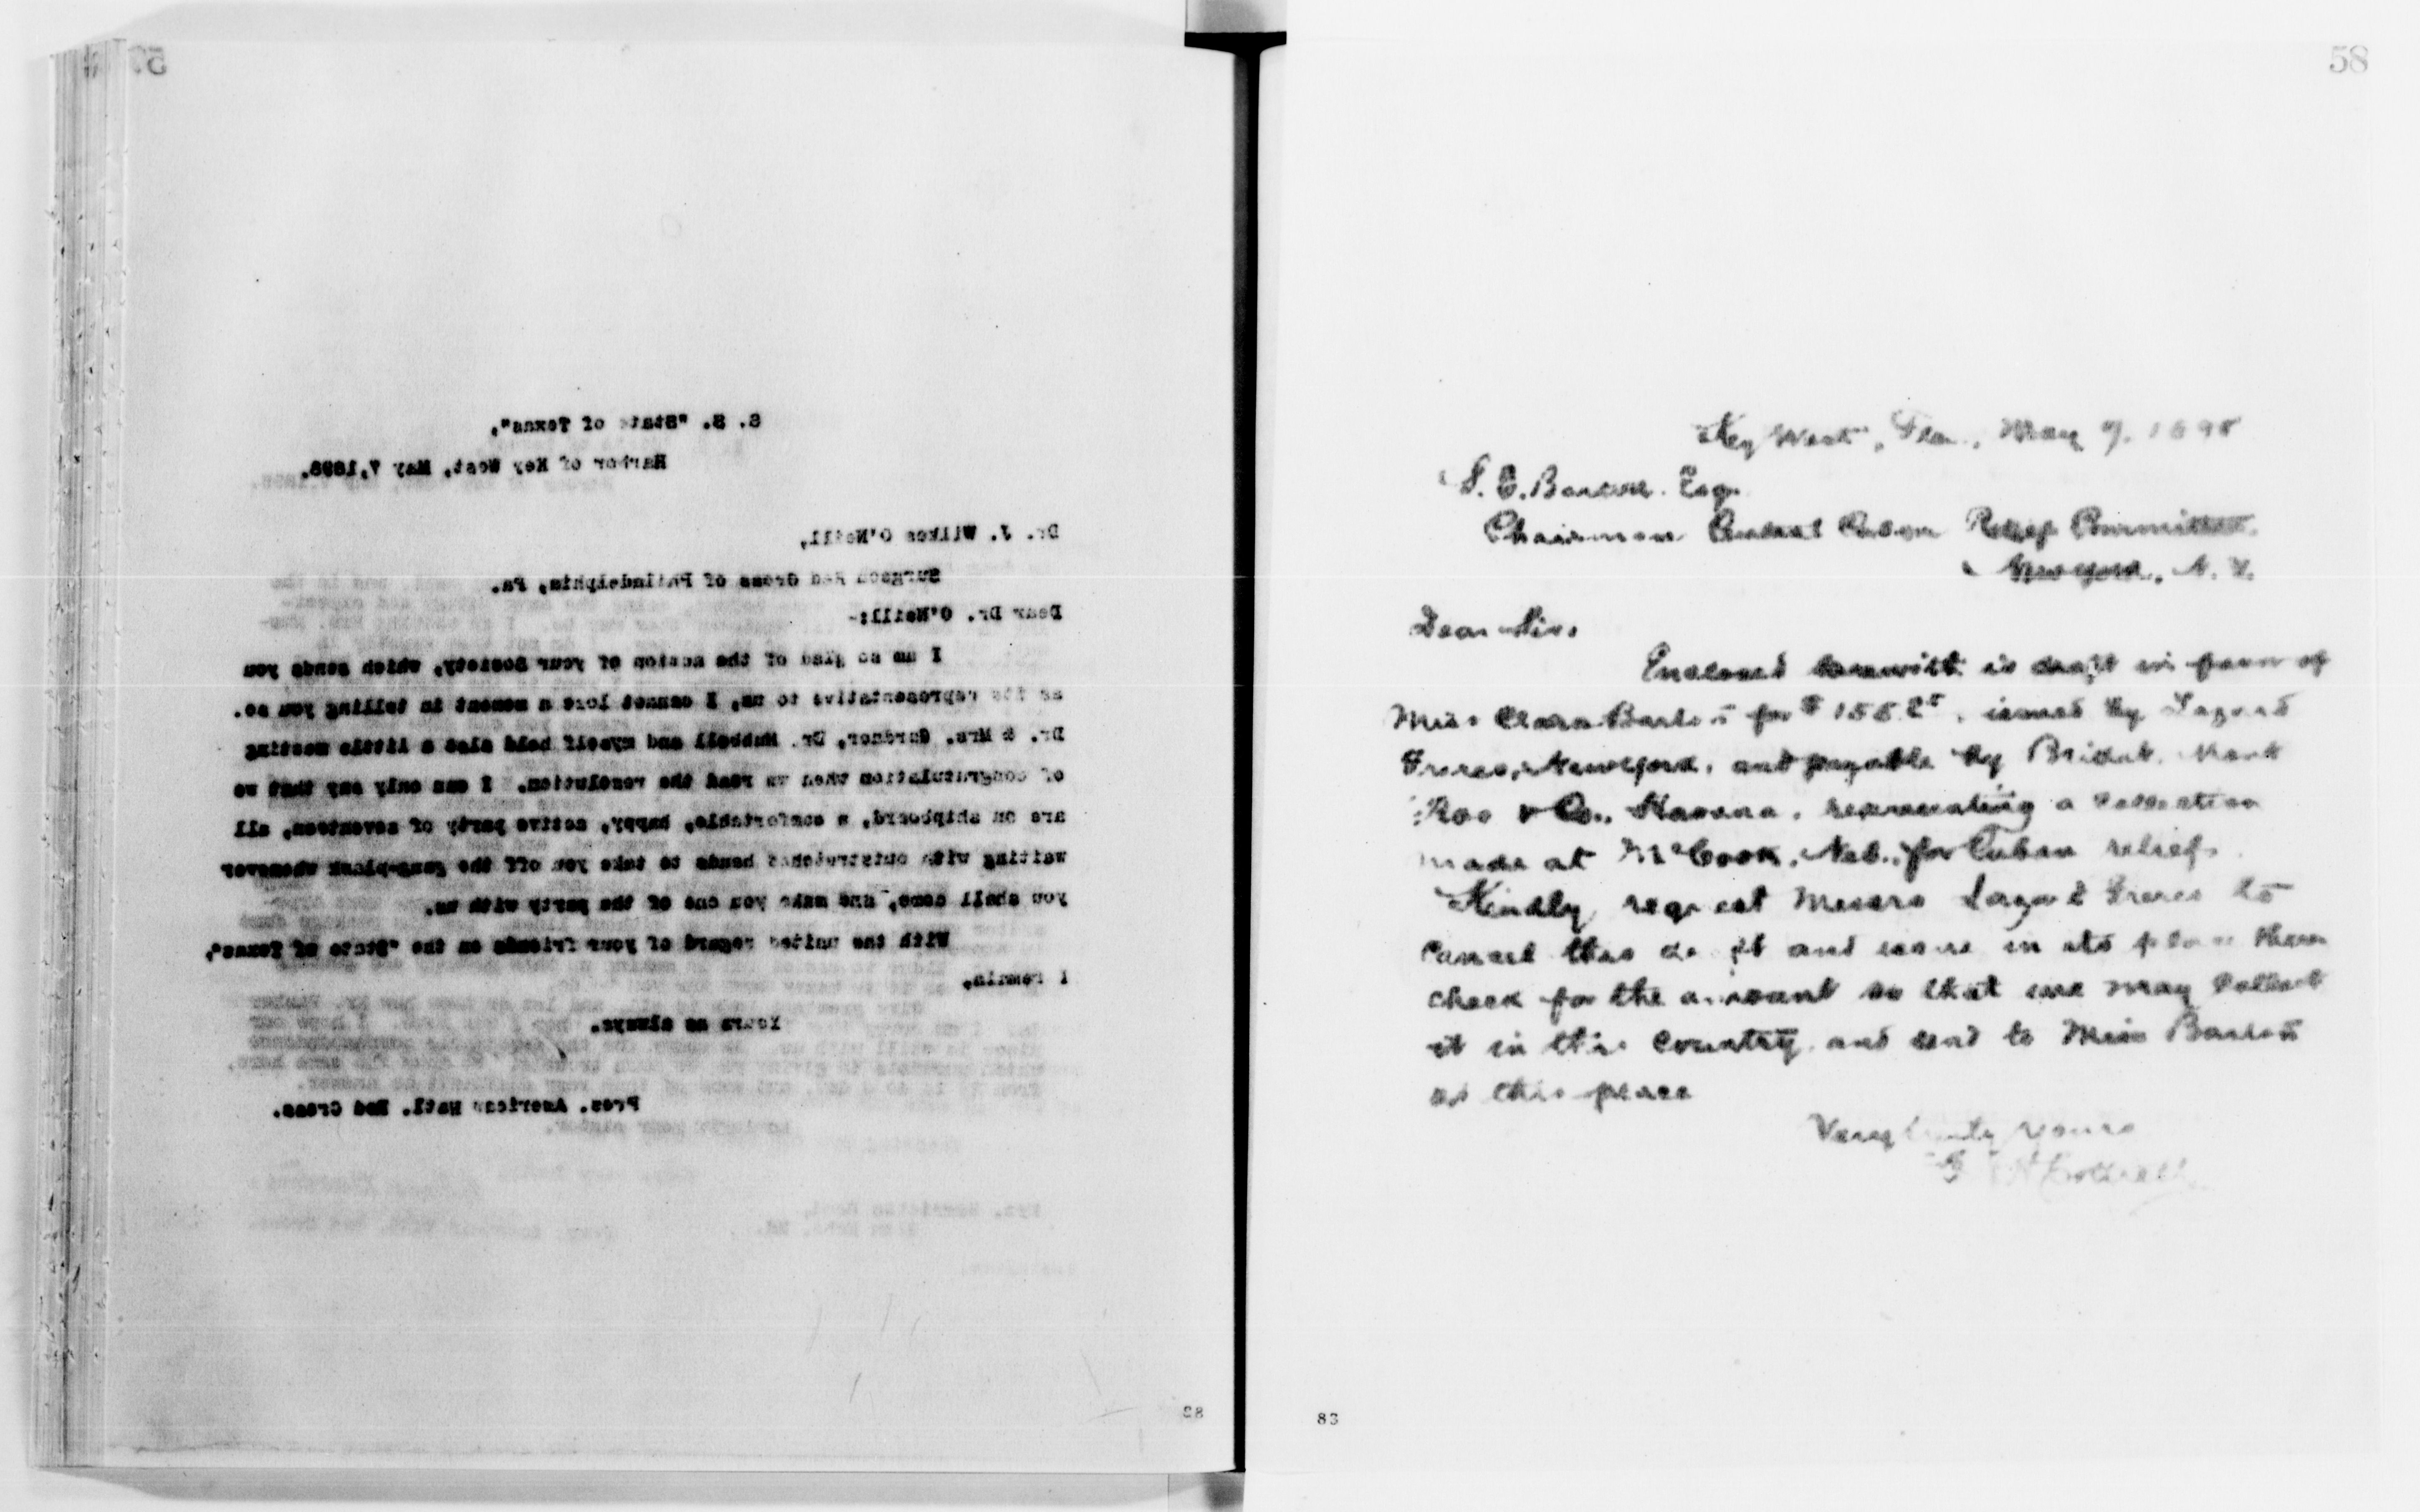 57
S. S. "State of Texas",
Harbor of Key West, May 7, 1898.
Dr. J. Wilkes O'Neill,
Surgeon Red Cross of Philadelphia, Pa.
Dear Dr. O'Neill:-
I am so glad of the action of your Society, which sends you
as its representative to us, I cannot lose a moment in telling you so.
Dr. & Mrs. Gardner, Dr. Hubbell and myself held also a little meeting
of congratulation when we read the resolution. I can only say that we
are on shipboard, a comfortable, happy, active party of seventeen, all
waiting with outstretched hands to take you off the gang-plank whenever
you shall come, and make you one of the party with us.
With the united regard of your friends on the "State of Texas",
I remain,
Yours as always.
Pres. American Natl. Red Cross.
82
58
Key West, Fla., May 7, 1898
S. E. Barton Esq.
Chairman Central Cuban Relief Committee.
New York, N. Y.
Dear Sir.
Enclosed herewith is draft in favor of
Miss Clara Barton for $155.25, issued by Lazard
Freres, New York, and payable by
& Co., Havana, representing a collection
made at McCook, Neb., for Cuban relief.
Kindly request Messrs Lazard Freres to
cancel this draft and issue in its place their
check for the amount so that we may collect
it in this country and send to Miss Barton
at this place
Very truly yours
83